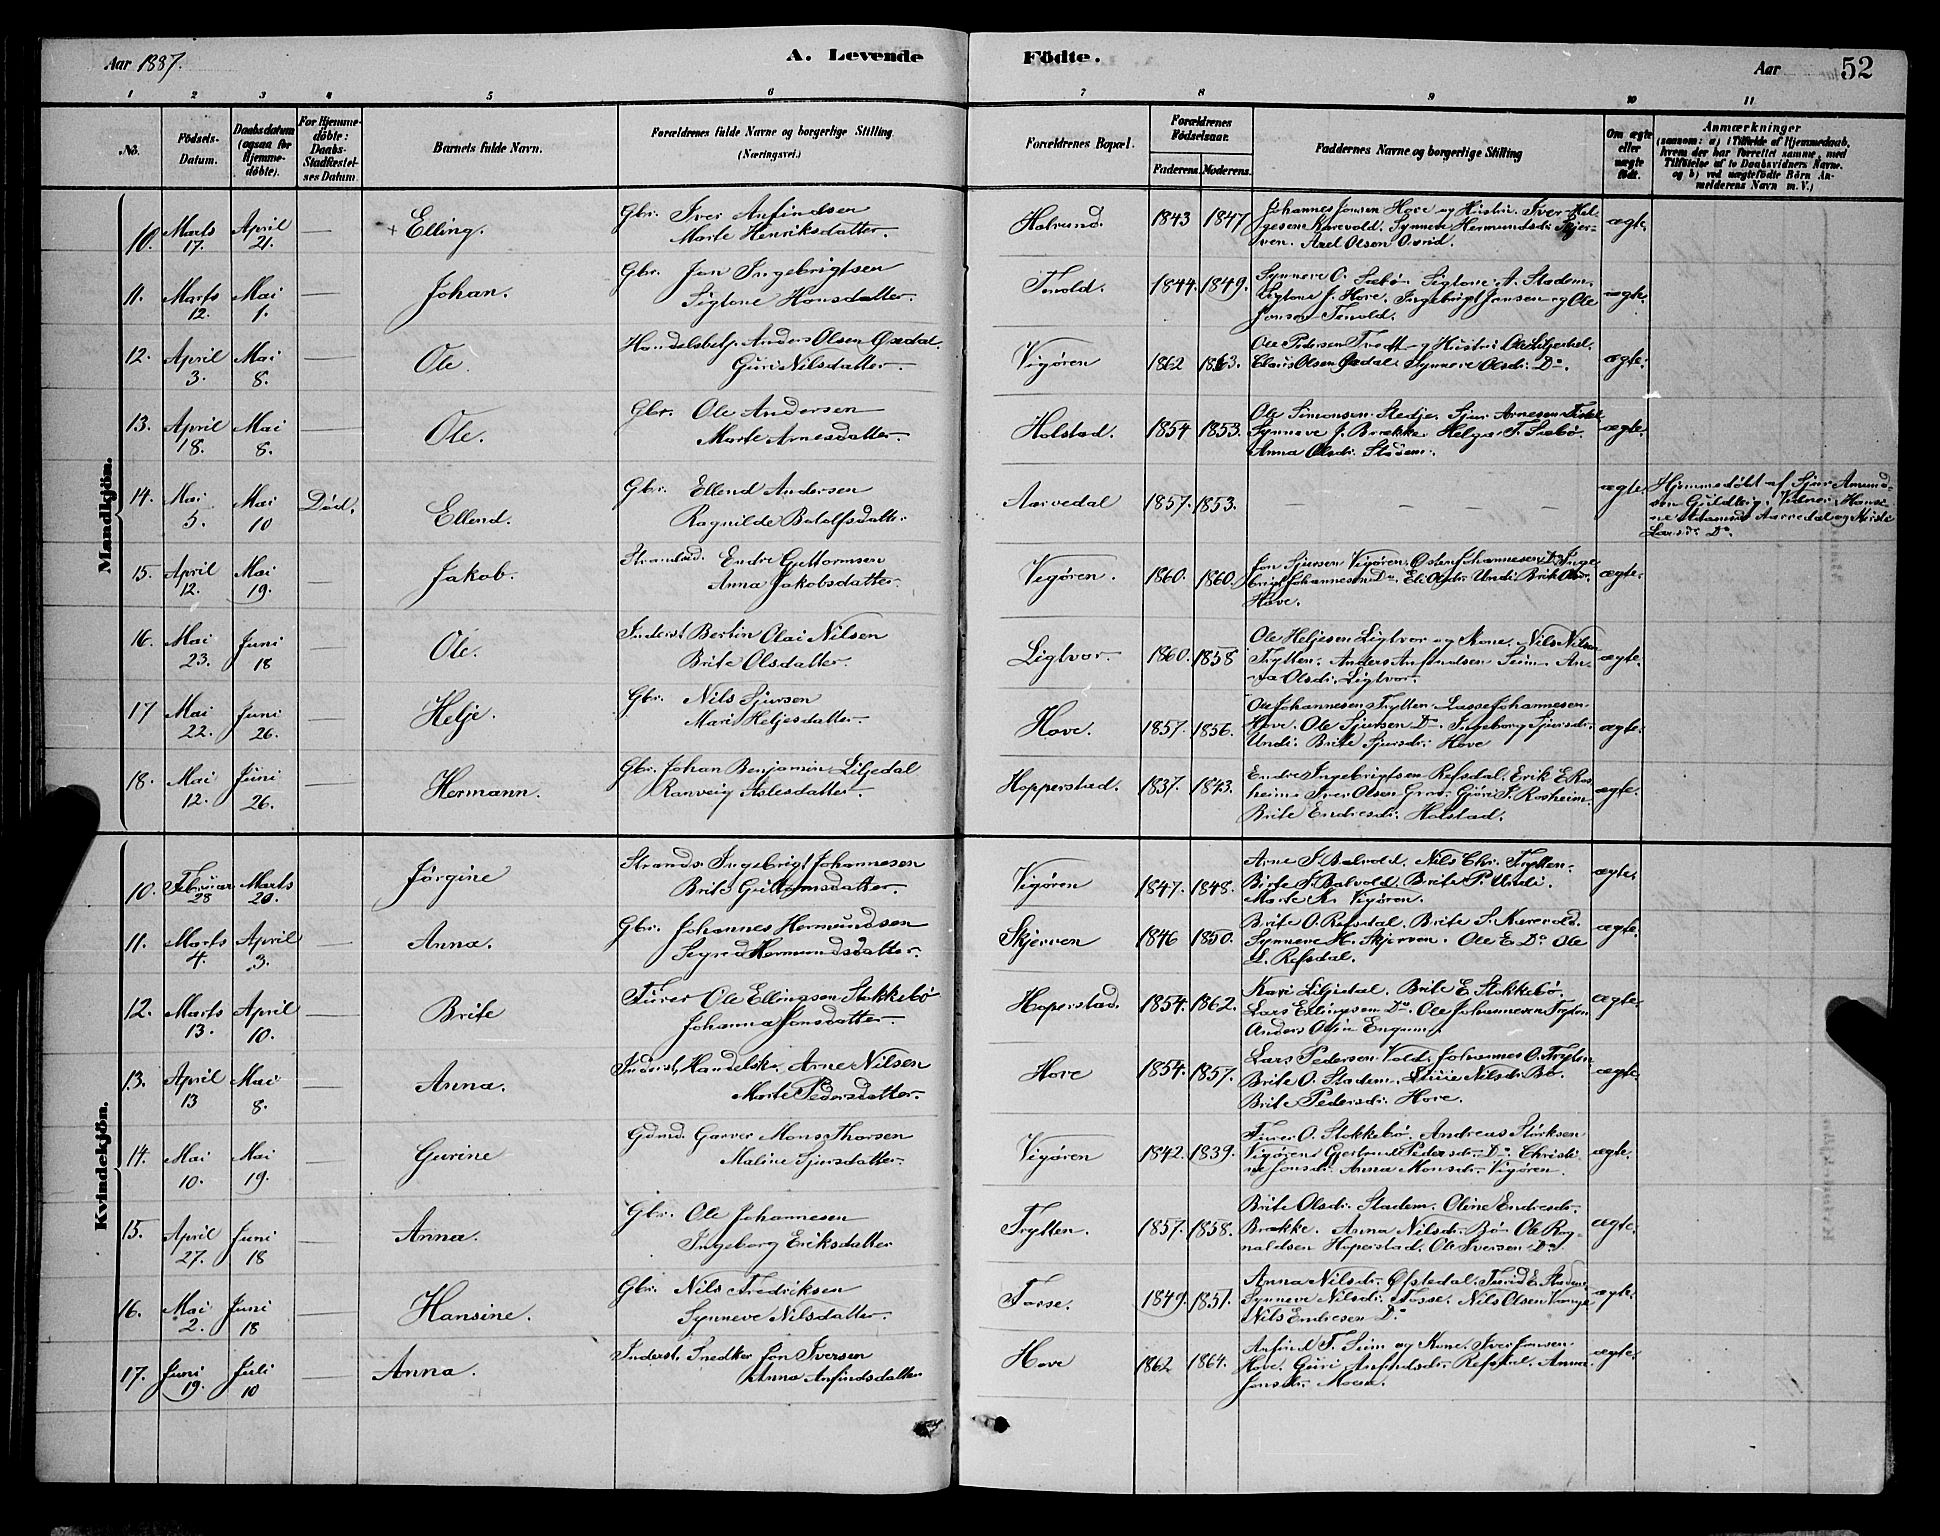 Aar 1887.
A. Levende
Födte.
Aar
52
1 2 3 4 5 6 7 8 9 10 11
No.
Födsels-Datum.
Daabsdatum (ogsaa for Hjemme-döbte).
For Hjemme-döbte: Daabs-Stadfæstel-ses Datum.
Barnets fulde Navn.
Forældrenes fulde Navne og borgerlige Stilling.
(Næringsvei.)
Forældrenes Bopæl.
Forældrenes Födselsaar.
Faderens. Moderens.
Faddernes Navne og borgerlige Stilling
Om ægte eller uægte födt.
Anmærkninger
(saasom: a) i Tilfælde af Hjemmedaab,
hvem der har forrettet samme, med
Tilföielse af to Daabsvidners Navne.
og b) ved uægtefödte Börn An-
melderens Navn m. V.)
Mandkjön.
10. Marts 17. April 21. — + Elling. Gbr. Iver Anfindsen
Marte Henriksdatter. Halrund. 1843 1847 Johannes Jonsen Hove og Hustru. Iver Hel-
gesen Kurevold. Synneve Hermundsdr. Skjer-
ven. Axel Olsen Ovrid. ægte.
11. Marts 12. Mai 1. — Johan. Gbr. Jon Ingebrigtsen
Sigtone Hansdatter. Tenold. 1844. 1849. Synneve O. Sæbø. Sigtone A. Stadem.
Sigtone J. Hove. Ingebrigt Jonsen og Ole
Jonsen Tenold. ægte.
12. April 3. Mai 8. — Ole. Handelsbetj. Anders Olsen Øxedal.
Guri Nilsdatter. Vigøren 1862 1863. Ole Pedersen Tvedt og Hustru. Ole Liljedal.
Claus Olsen Øxedal. Synneve Olsdr. Do. ægte.
13. April 18. Mai 8. — Ole. Gbr. Ole Andersen
Marte Arnesdatter. Holstad. 1854 1853. Ole Simonsen Stedje. Sjur Arnesen
Synneve J. Brække. Helga T. Sæbø.
Anna Olsdr. Stadem. ægte.
14. Mai 5. Mai 10 Död. Ellend. Gbr. Ellend Andersen
Ragnilde Botolfsdatter. Aarvedal 1857. 1853. — — — ægte. Hjemmedøbt af Sjur Amund-
sen Vidner: Hansi-
ne Aarvedal og Kirsti
Larsdr. Do.
15. April 12. Mai 19. — Jakob. Strandsid. Endre Guttormsen
Anna Jakobsdatter. Vigøren. 1860. 1860. Jon Sjursen Vigøren. Østen Johannesen Do. Inge-
brigt Johannesen Do. Eli Olsdr. Undi. Brite Olsdr.
Hove. ægte.
16. Mai 23. Juni 18 — Ole. Inderst Bertin Olai Nilsen
Brite Olsdatter. Ligtvor. 1860. 1858 Ole Heljesen Ligtvor og Kone. Nils Nilsen
Trytten. Anders Anfindsen Seim. An-
na Olsdr. Ligtvor. ægte.
17 Mai 22. Juni 26. — Helje. Gbr. Nils Sjursen
Mari Heljesdatter. Hove. 1857. 1856. Ole Johannesen Trytten. Lasse Johannesen
Hove. Ole Sjursen Do. Ingeborg Sjursdr.
Undi. Brite Sjursdr. Hove ægte.
18. Mai 12. Juni 26. — Hermann. Gbr. Johan Benjamin Liljedal
Ranveig Aslesdatter. Hopperstad. 1837. 1843. Endre Ingebrigtsen Refsdal. Erik E. Ros-
heim. Iver Olsen Grov. Gjøri P. Rosheim.
Brite Endresdr. Holstad. ægte.
Kvindekjön.
10. Februar 28 Marts 20. — Jörgine Strands. Ingebrigt Johannesen
Brite Guttormsdatter. Vigøren 1847. 1848. Arne J. Balvold. Nils Chr. Trytten.
Birte J. Balvold. Brite P. Undi.
Marte N. Vigøren. ægte.
11. Marts 4. April 3. — Anna. Gbr. Johannes Hermundsen
Segred Hermundsdatter. Skjerven 1846 1850. Brite O. Refsdal. Brite S. Kurevold.
Synneve H. Skjerven. Ole E. Do. Ole
L. Refsdal. ægte.
12. Marts 13. April 10. — Brite Furer Ole Ellingsen Stokkebø
Johanna Jonsdatter. Hoperstad. 1854. 1862. Kari Liljedal. Brite E. Stokkebø.
Lars Ellingsen Do. Ole Johannesen Trytten
Anders Olsen Engum. ægte.
13. April 13 Mai 8. — Anna. Inderst, Handelsk. Arne Nilsen
Marte Pedersdatter. Hove 1854. 1857. Lars Pedersen Vold. Johannes O. Trytten
Brite O. Stadem. Nilsdr. Bø.
Brite Pedersdr. Hove. ægte.
14. Mai 10. Mai 19. — Gurine Gdmd. Garver Mons Thorsen
Maline Sjursdatter. Vigøren 1842. 1839. Furer O. Stokkebø. Andreas Størksen
Vigøren. Gjertrude Pedersdr. Do. Christi-
ne Jonsdr. Anna Monsdr. Vigøren. ægte.
15. April 27. Juni 18 — Anna. Gbr. Ole Johannesen
Ingeborg Eriksdatter Trytten. 1857. 1858. Brite Olsdr. Stadem. Oline Endresdr.
Brække. Anna Nilsdr. Bø. Ole Rog-
naldsen Hoperstad. Ole Iversen Do. ægte.
16. Mai 2. Juni 18 — Hansine. Gbr. Nils Fredriksen
Synneve Nilsdatter. Fosse. 1849. 1851. Anna Nilsdr. Øfstedal. Turid E. Stadem.
Synneve Nilsdr. Fosse. Nils Olsen Vange
Nils Endresen Do. ægte.
17. Juni 19. Juli 10 — Anna. Inderst, Snedker Jon Iversen
Anna Anfindsdatter Hove 1862 1864. Anfind T. Seim og Kone. Iver Jonsen
Hove. Guri Anfindsdr. Refsdal. Anna
Jonsdr. ægte.